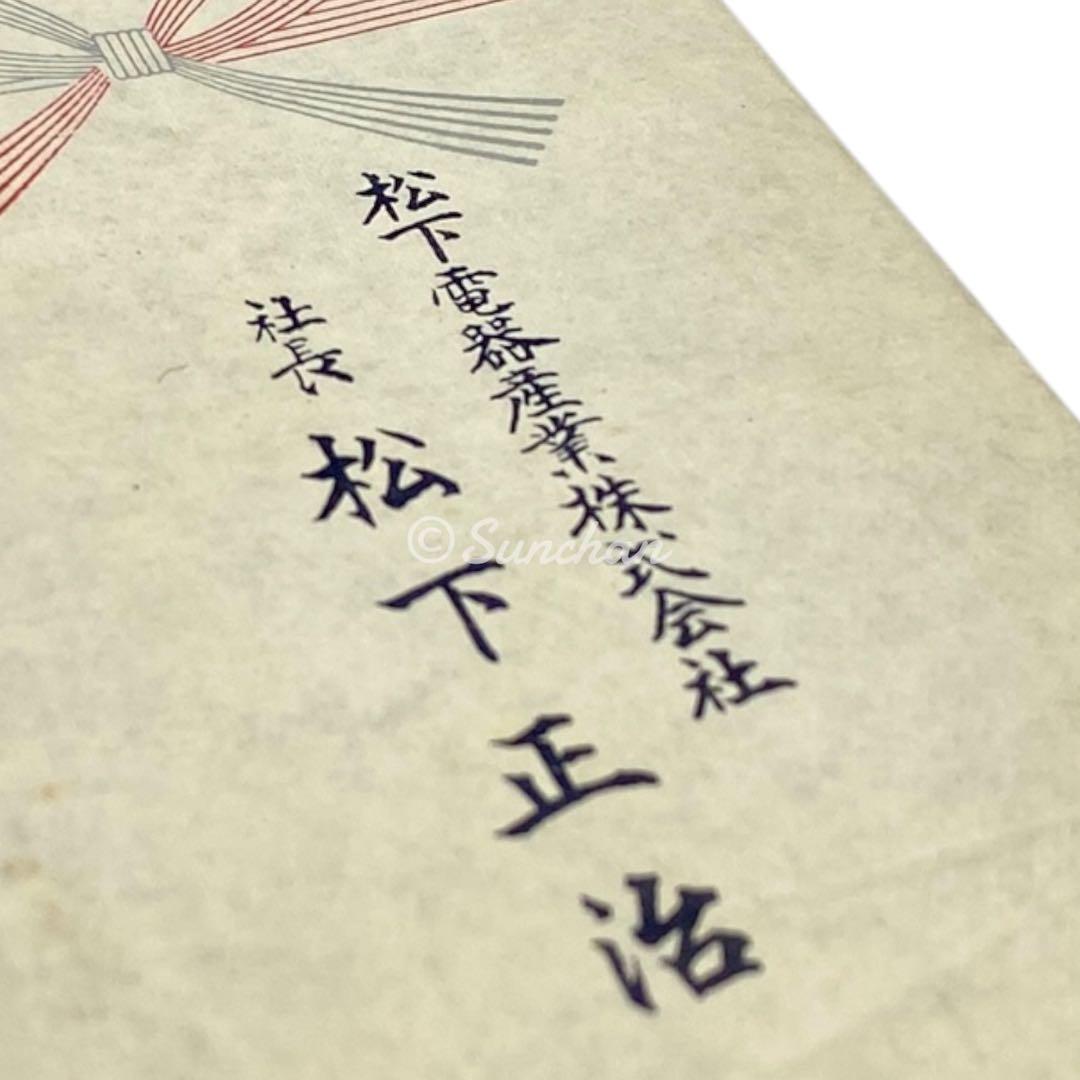 松下電器産業株式会社
社長 松下正治
©Sunchan